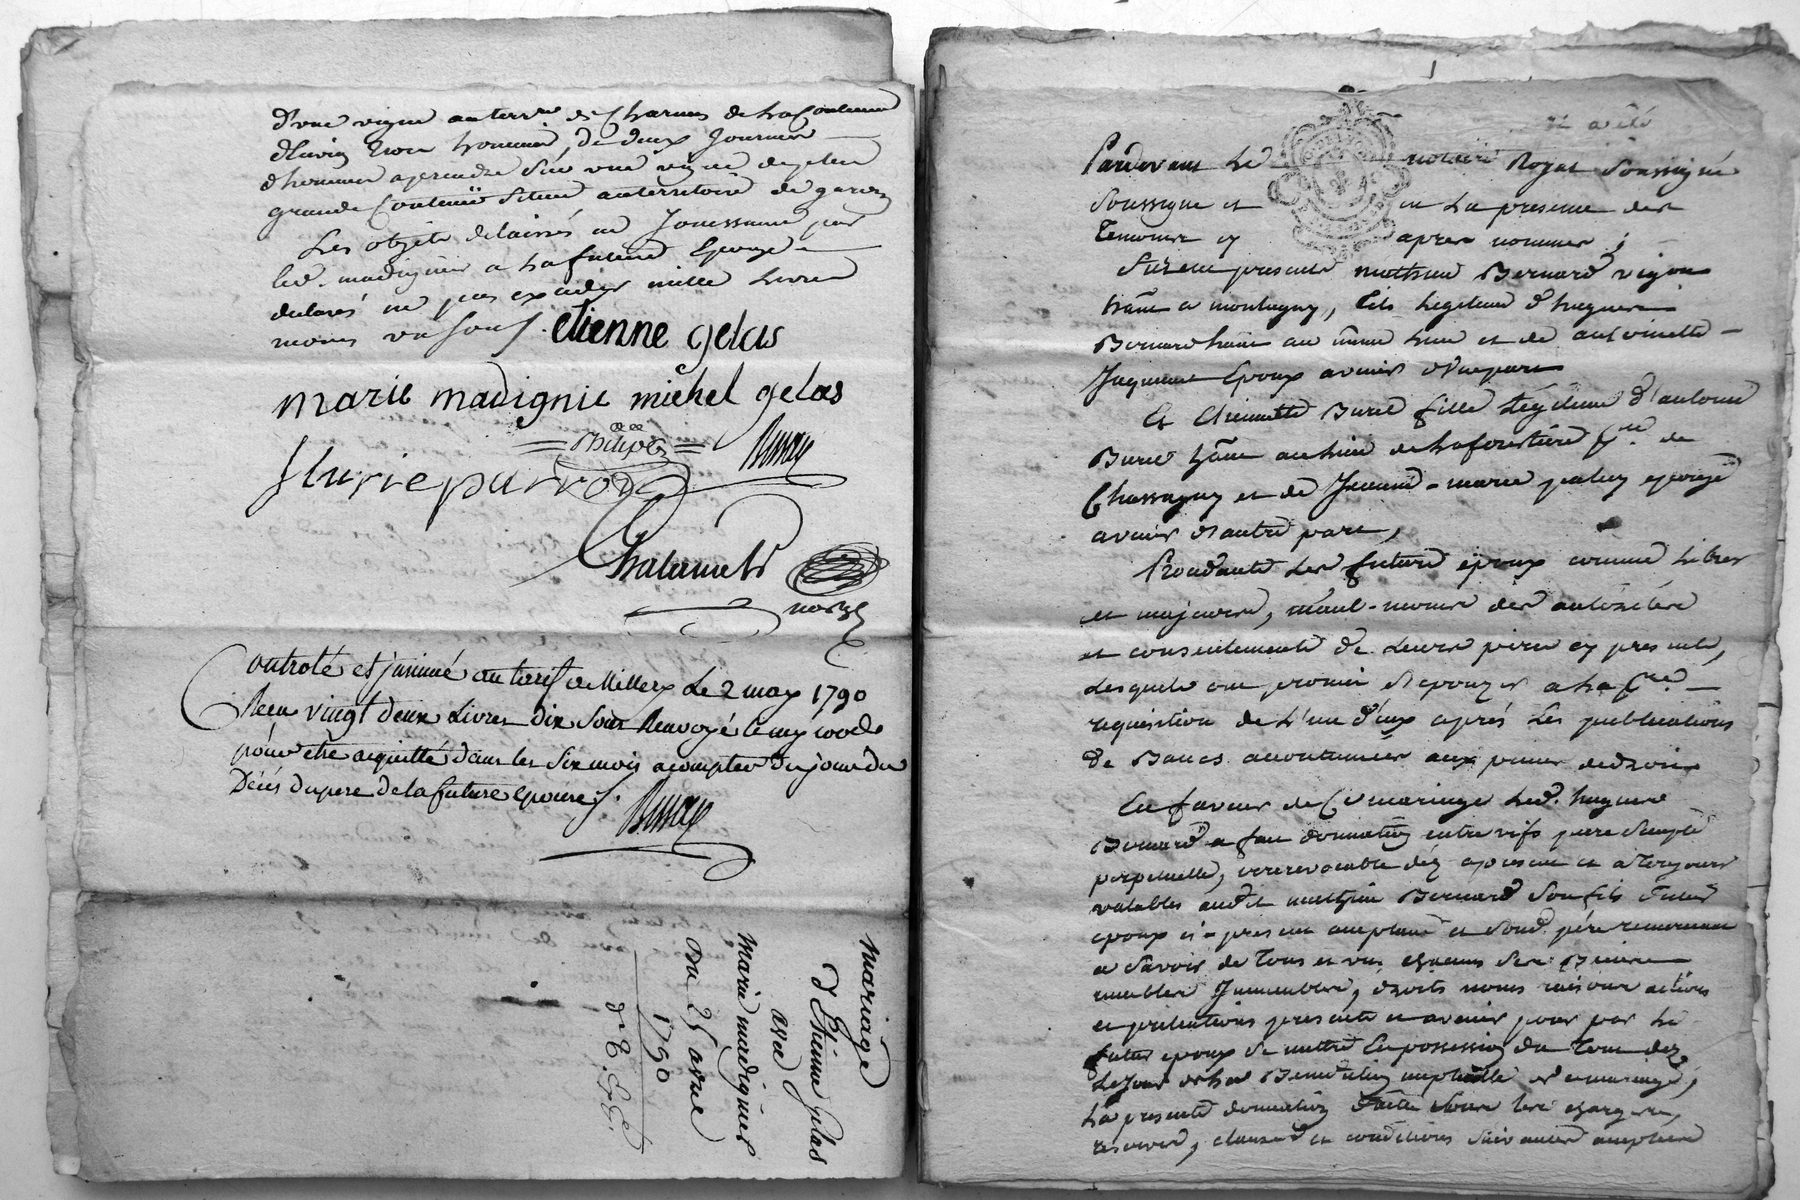 d'une vigne au terr.re de Charnes de la Contenue
d'environ trois hommées, de deux Journées
d'hommes a prendre sur une vigne de plus
grande Contenue Située au territoire de
Les objets délaissés en Jouissance par
led. madignier a la future Epouze
declarés ne pas exceder mille livres
etienne gelas
marie madignie michel gelas
philipe Bussay
flurie parrod
Chalamel
not.re
Controlé et insinué au tarif de Millery Le 2 may 1790
Recu vingt deux Livres dix Sous Renvoyé le
pour etre acquitté dans les Six mois a compter du jour du
Décés du pere de la future epouse.
Bussay
mariage
d'Etienne Gelas
avec
marie madignier
Du 25 avril
1790
Pardevant Le notaire Royal Soussigné
Soussigné et en la presence des
Temoins cy apres nommés ;
Furent presents mathieu Bernard vigneron
a montagny, fils legitime d'hugues
Bernard au même lieu et de antoinette
Epoux avenir d'une part
Et Etiennette Buret fille Légitime d'antoine
Buret au lieu de la forestiere p.sse de
Chassagny et de Jeanne-marie epouze
avenir d'autre part,
Procedants Les futurs époux comme Libres
et majeurs, neant-moins des autorités
et consentements de Leurs peres cy presents,
Lesquels ont promis s'epouzer a la p.re
requisition de L'un d'eux aprés Les publications
de Bancs accoutumées aux peines de droit
En faveur de Ce mariage Led. hugues
Bernard a fait donation entre vifs pure Simple
perpetuelle, irrevocable dés a present et a Toujours
valable audit mathieu Bernard Son fils Futur
epoux ci-present acceptant et Sond. pére remerciant
a Savoir de Tous et uns chacuns Ses Biens
meubles Immeubles, droits noms raisons actions
et pretentions presents et avenir pour par Le
futur epoux Se mettre En possession du Tout dez
Le Jour de la Benediction nuptialle de ce mariage,
La presente donnation Faite Sous Les charges,
reserves, clauses et conditions Suivantes